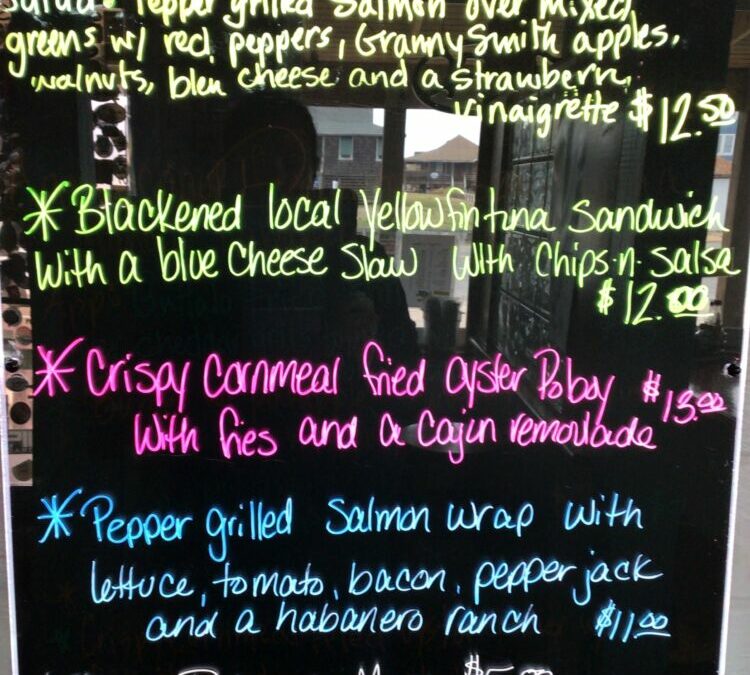 salad - Pepper grilled Salmon over mixed
greens w/ red peppers, Granny Smith apples,
walnuts, bleu cheese and a strawberry
vinaigrette $12.50
* Blackened local Yellowfin tuna Sandwich
With a blue Cheese Slaw with Chips-n-Salsa
$12.00
* Crispy Cornmeal fried Oyster Poboy $13.00
With fries and a Cajun remoulade
* Pepper grilled Salmon wrap with
lettuce, tomato, bacon, pepper jack
and a habanero ranch $11.00